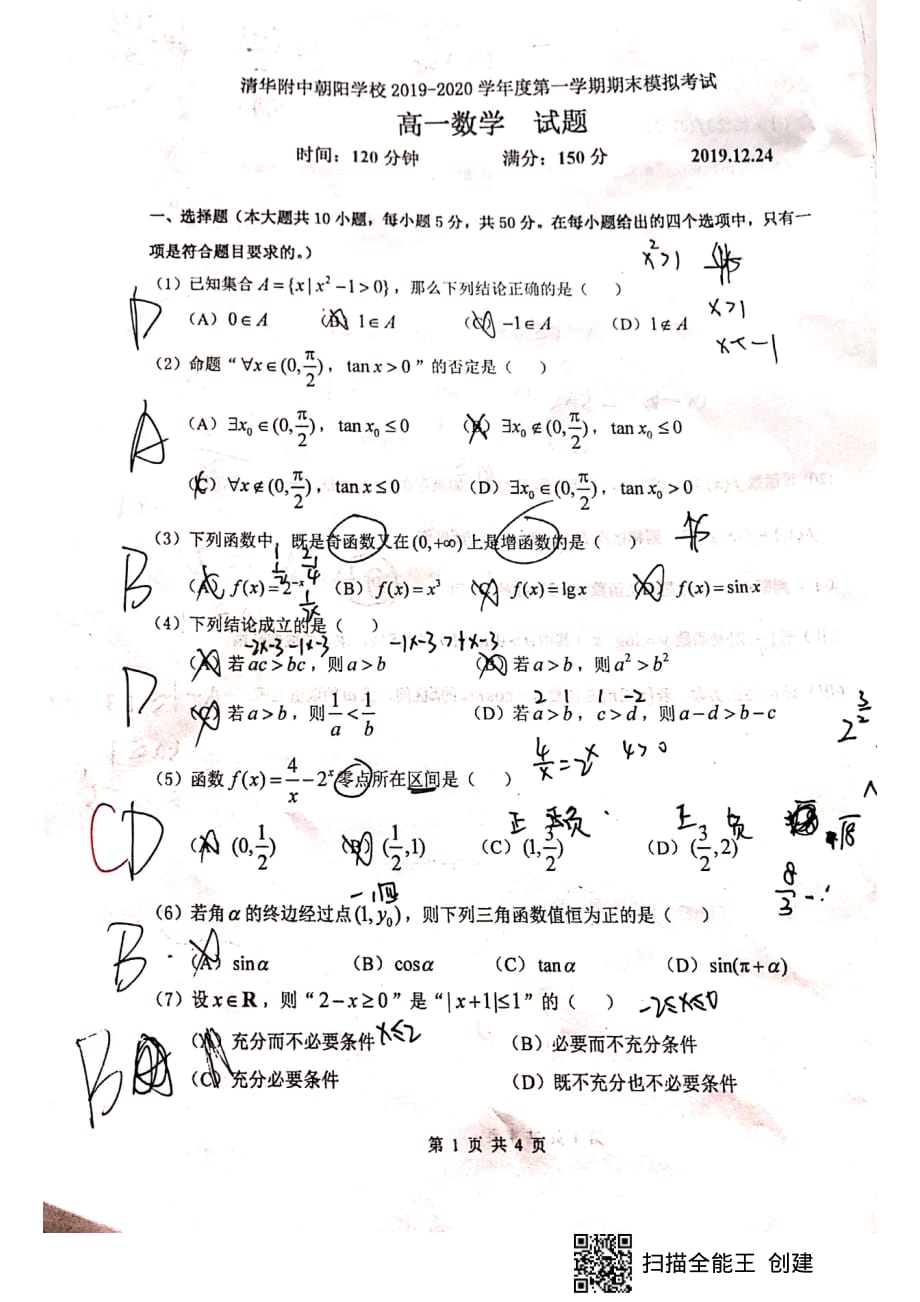 清华附中朝阳学校 2019-2020 学年度第一学期期末模拟考试
高一数学 试题
时间：120 分钟 满分：150 分 2019.12.24
一、选择题（本大题共 10 小题，每小题 5 分，共 50 分。在每小题给出的四个选项中，只有一
项是符合题目要求的。）
x²>1
（1）已知集合 A={x|x²−1>0}，那么下列结论正确的是（ ）
x>1
D （A）0∈A （B）1∈A （C）−1∈A （D）1∉A
x<−1
（2）命题“∀x∈(0,π/2)，tan x>0”的否定是（ ）
A （A）∃x₀∈(0,π/2)，tan x₀≤0 （B）∃x₀∉(0,π/2)，tan x₀≤0
（C）∀x∉(0,π/2)，tan x≤0 （D）∃x₀∈(0,π/2)，tan x₀>0
（3）下列函数中，既是奇函数又在(0,+∞)上是增函数的是（ ）
B （A）f(x)=2⁻ˣ （B）f(x)=x³ （C）f(x)=lg x （D）f(x)=sin x
（4）下列结论成立的是（ ）
−2x−3 −1x−3 −1x−3>1x−3
（A）若 ac>bc，则 a>b （B）若 a>b，则 a²>b²
2 1 1 −2
D （C）若 a>b，则 1/a<1/b （D）若 a>b，c>d，则 a−d>b−c
2^(3/2)
4/x=2ˣ 4>0
（5）函数 f(x)=4/x−2ˣ 零点所在区间是（ ）
正 负 正 负
CD （A）(0,1/2) （B）(1/2,1) （C）(1,3/2) （D）(3/2,2)
√8
8/3
（6）若角 α 的终边经过点(1,y₀)，则下列三角函数值恒为正的是（ ）
B （A）sin α （B）cos α （C）tan α （D）sin(π+α)
（7）设 x∈R，则“2−x≥0”是“|x+1|≤1”的（ ） −2≤x≤0
（A）充分而不必要条件 x≤2 （B）必要而不充分条件
B （C）充分必要条件 （D）既不充分也不必要条件
第 1 页 共 4 页
扫描全能王 创建